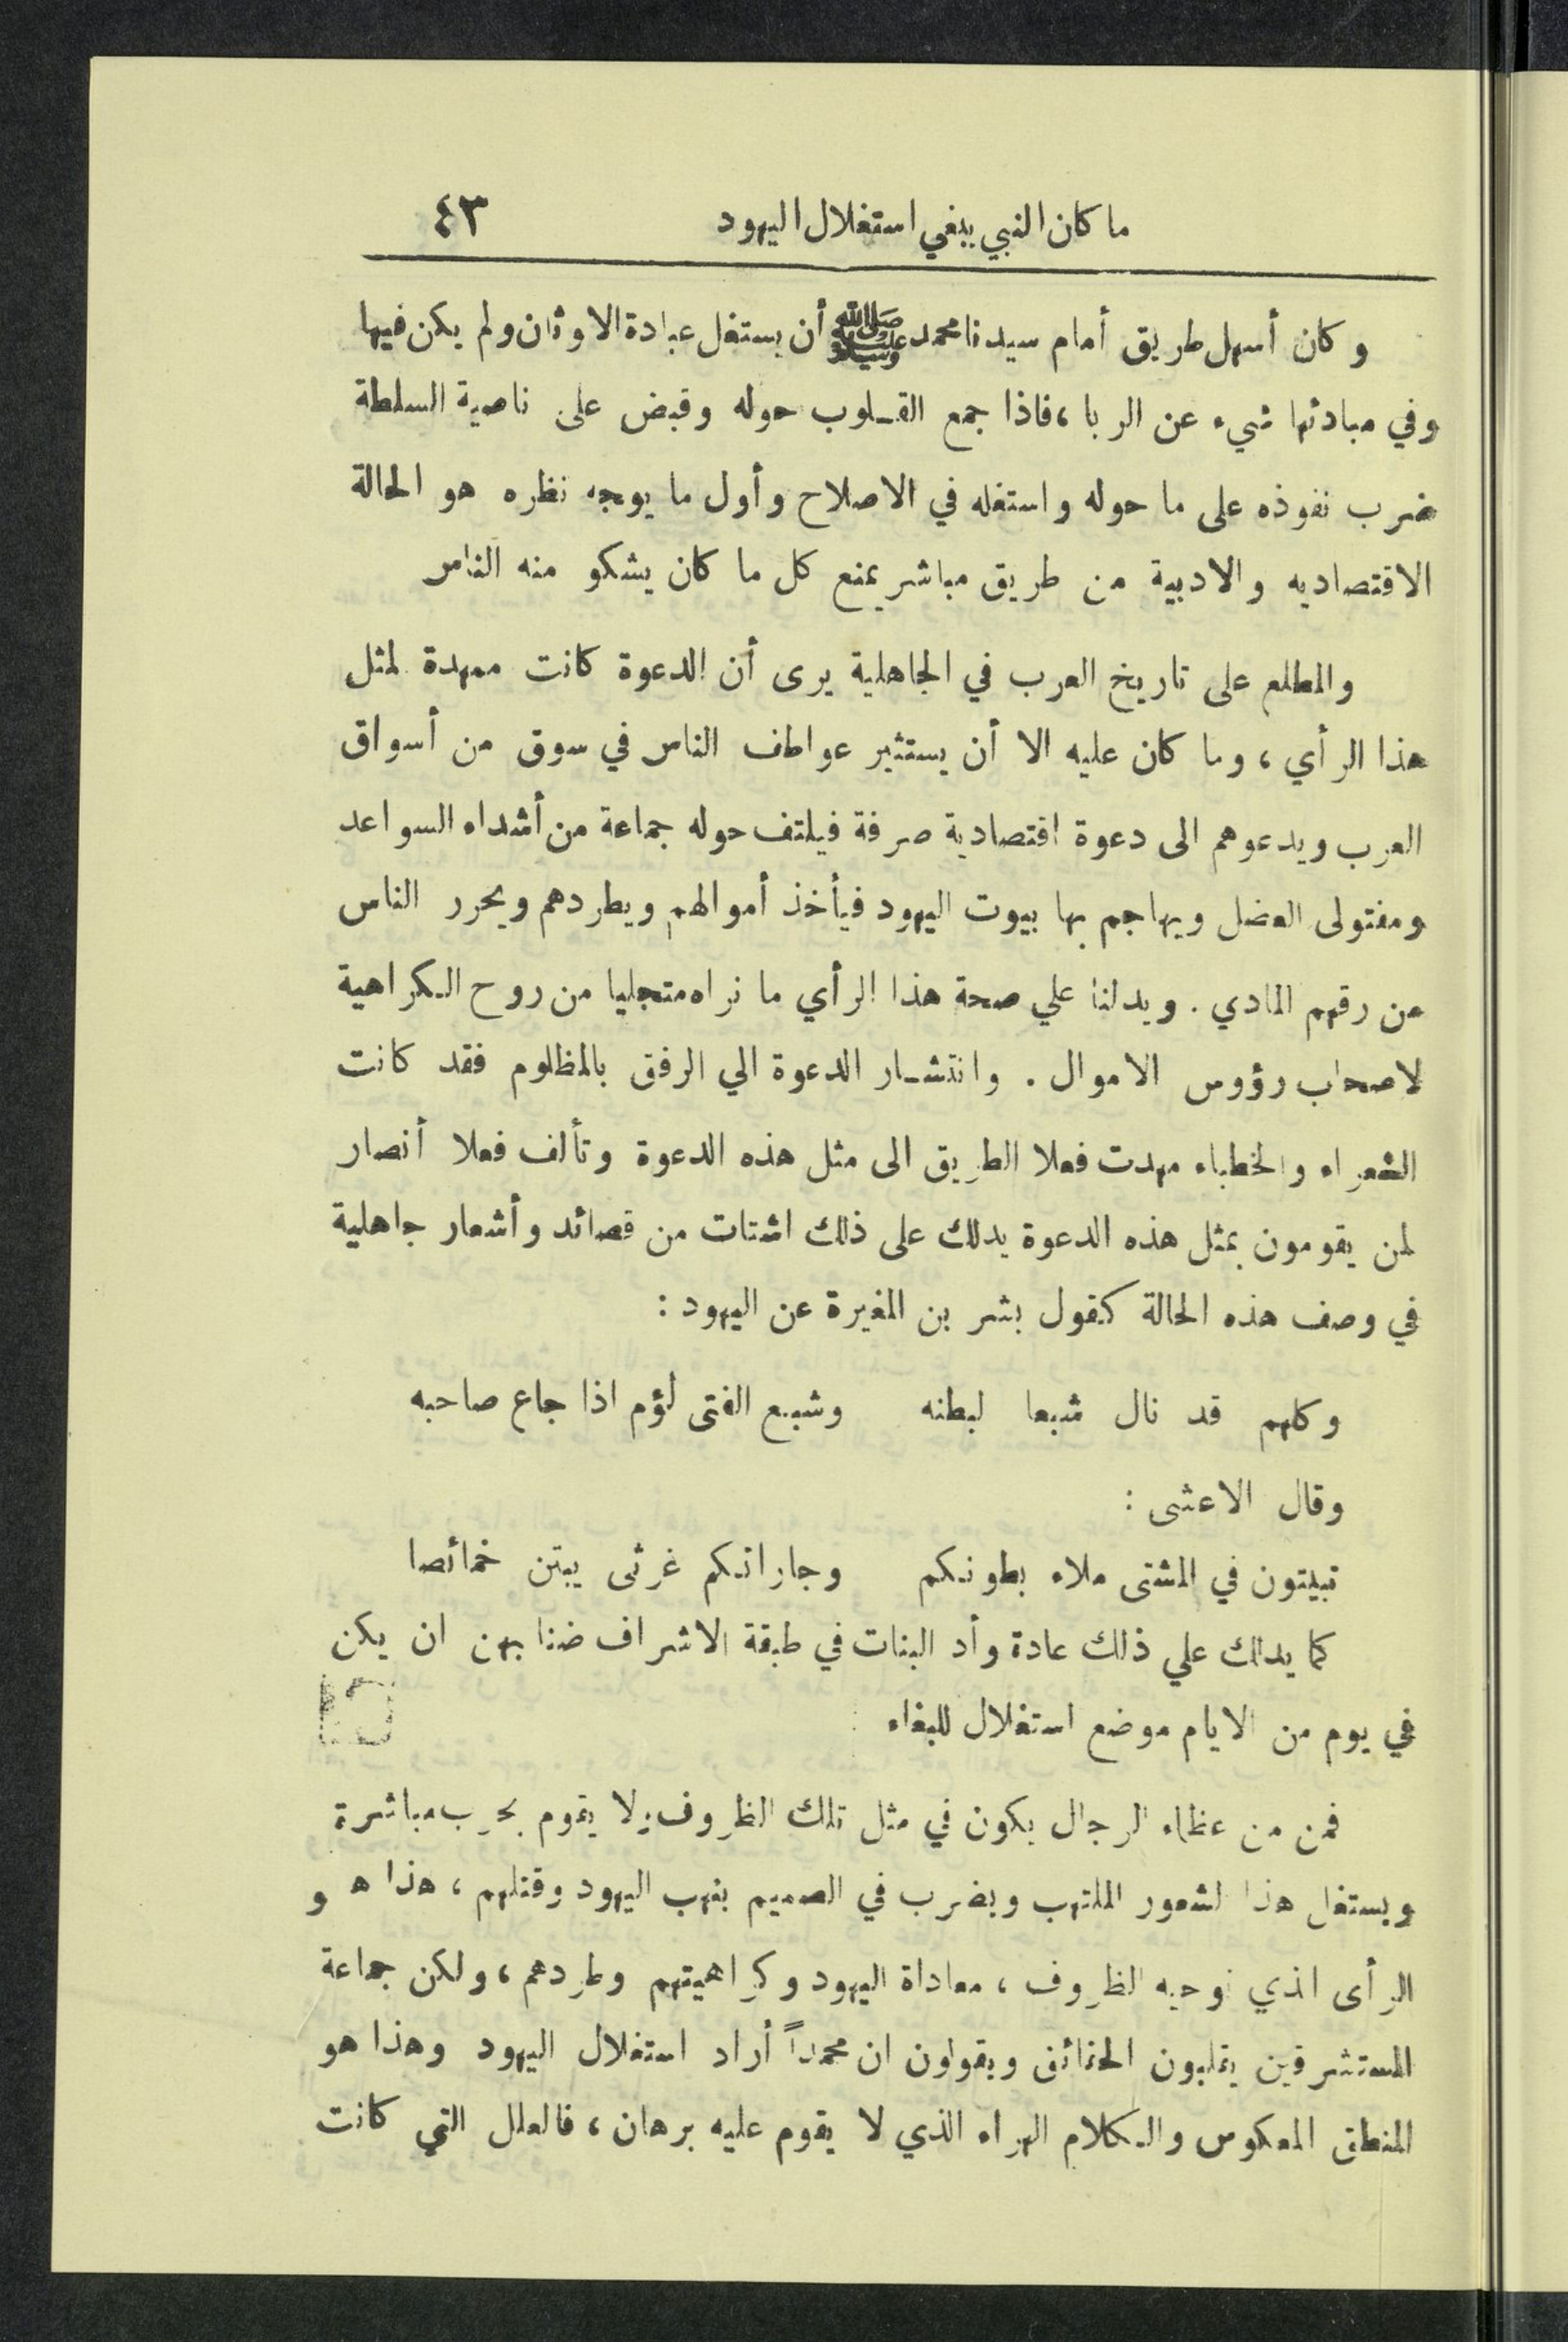 ما كان النبي يبغي استغلال اليهود ٤٣
وكان أسهل طريق أمام سيدنا محمد ﷺ أن يستغل عبادة الاوثان ولم يكن فيها
وفي مبادئها شيء عن الربا ، فاذا جمع القلوب حوله وقبض على ناصية السلطة
ضرب نفوذه على ما حوله واستغله في الاصلاح وأول ما يوجه نظره هو الحالة
الاقتصاديه والادبية من طريق مباشر يمنع كل ما كان يشكو منه الناس
والمطلع على تاريخ العرب في الجاهلية يرى أن الدعوة كانت ممهدة لمثل
هذا الرأي ، وما كان عليه الا أن يستثير عواطف الناس في سوق من أسواق
العرب ويدعوهم الى دعوة اقتصادية صرفة فيلتف حوله جماعة من أشداء السواعد
ومفتولى العضل ويهاجم بها بيوت اليهود فيأخذ أموالهم ويطردهم ويحرر الناس
من رقهم المادي . ويدلنا علي صحة هذا الرأي ما نراه متجليا من روح الكراهية
لاصحاب رؤوس الاموال . وانتشار الدعوة الي الرفق بالمظلوم فقد كانت
الشعراء والخطباء مهدت فعلا الطريق الى مثل هذه الدعوة وتألف فعلا أنصار
لمن يقومون بمثل هذه الدعوة يدلك على ذلك اشتات من قصائد وأشعار جاهلية
في وصف هذه الحالة كقول بشر بن المغيرة عن اليهود :
وكلهم قد نال شبعا لبطنه وشبع الفتى لؤم اذا جاع صاحبه
وقال الاعشى :
تبيتون في المشتى ملاء بطونكم وجاراتكم غرثى يبتن خمائصا
كما يدلك علي ذلك عادة وأد البنات في طبقة الاشراف ضنا بهن ان يكن
في يوم من الايام موضع استغلال للبغاء
فمن من عظماء الرجال يكون في مثل تلك الظروف ولا يقوم بحرب مباشرة
ويستغل هذا الشعور الملتهب ويضرب في الصميم بنهب اليهود وقتلهم ، هذا هو
الرأى الذي توحيه الظروف ، معاداة اليهود وكراهيتهم وطردهم ، ولكن جماعة
المستشرقين يقلبون الحقائق ويقولون ان محمداً أراد استغلال اليهود وهذا هو
المنطق المعكوس والكلام الهراء الذي لا يقوم عليه برهان ، فالعلل التي كانت